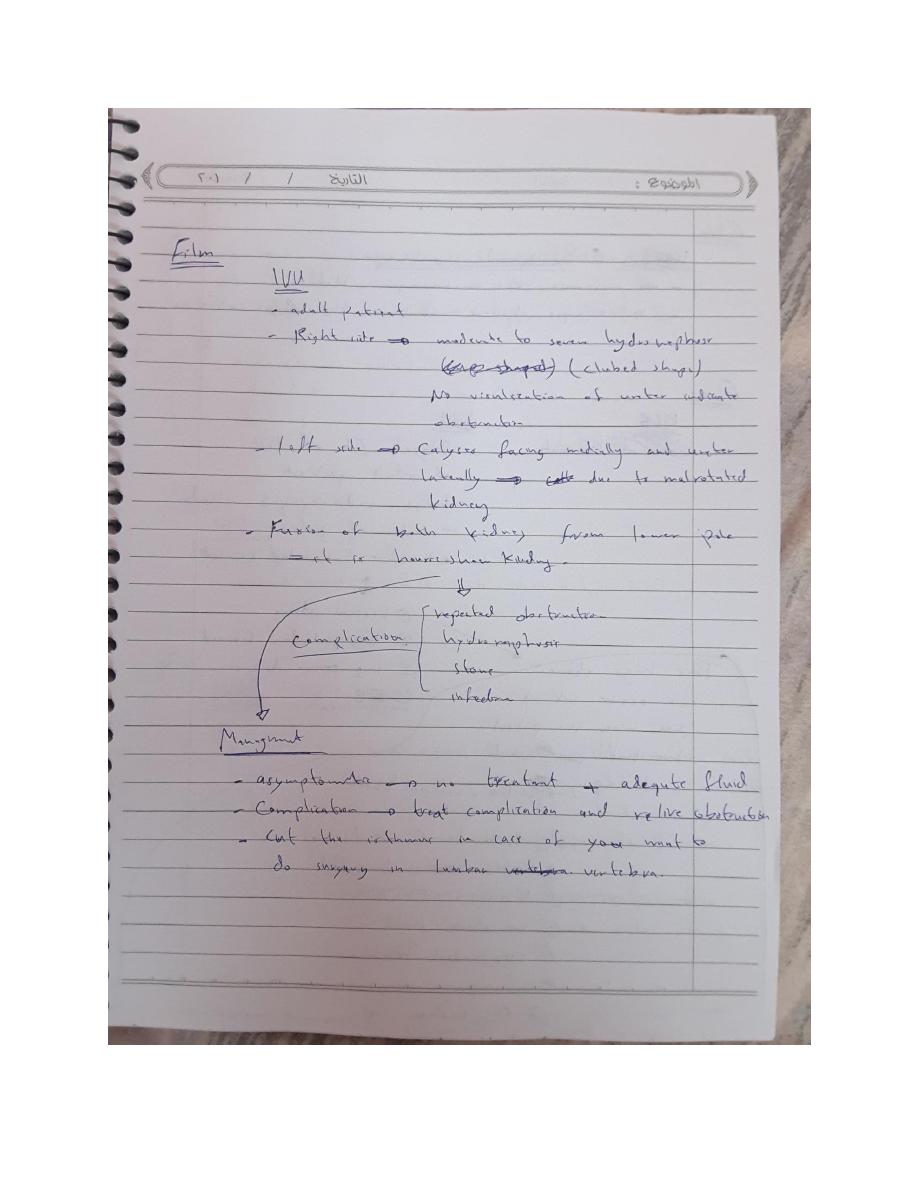 الموضوع : التاريخ / / ٢٠١
Film
IVU
- adult patient
- Right site ⇒ moderate to severe hydronephrosr
(cup shaped) (clubed shape)
No visulization of ureter indicate
obstruction
- left side ⇒ Calyses facing medially and ureter
laterally ⇒ due to malrotated
kidney
- Fusion of both kidney from lower pole
= it is hourseshoe kidny.
⇓
repeated obstruction
Complication hydronephrosis
stone
infection
Managment
- asymptomatic → no treatment + adequte fluid
- Complication → treat complication and relive obstruction
- Cut the isthmus in case of you want to
do surgury in lumbar vertebra. vertebra.